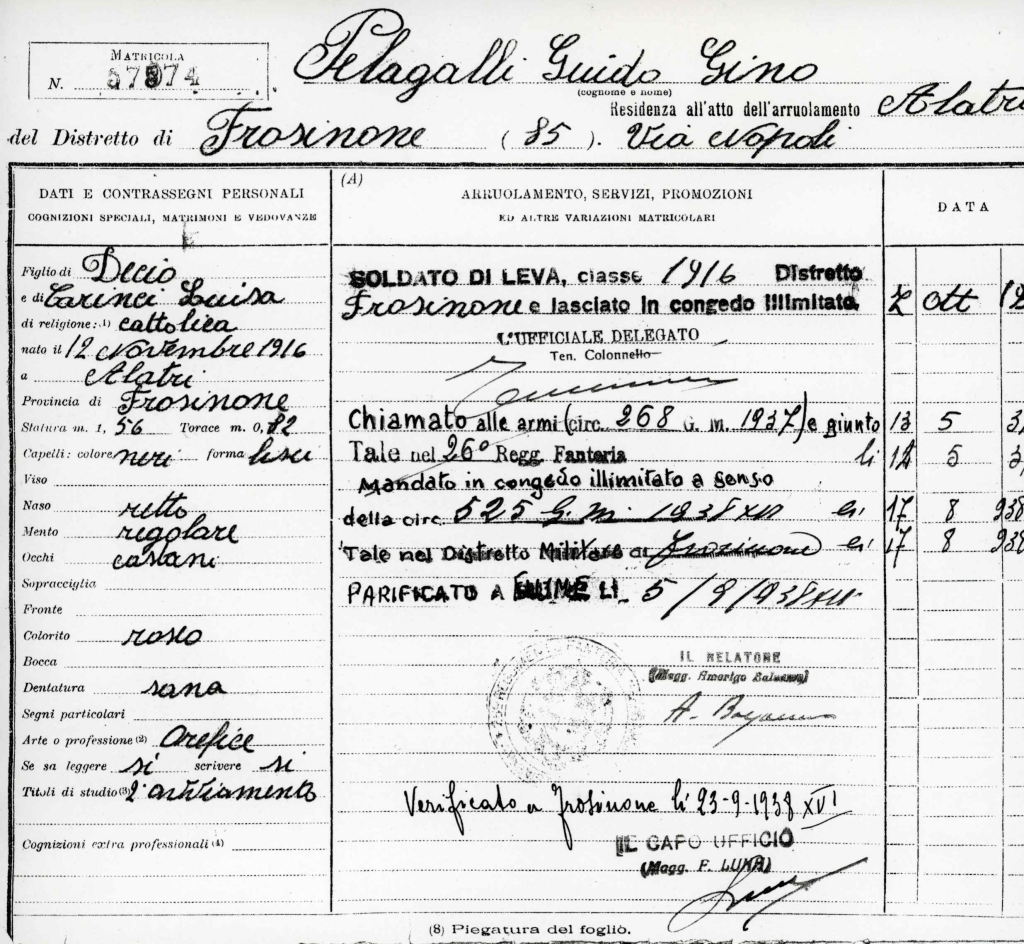 MATRICOLA
N. 57974
Pelagalli Guido Gino
(cognome e nome)
Residenza all'atto dell'arruolamento Alatri
del Distretto di Frosinone (85). Via Napoli
DATI E CONTRASSEGNI PERSONALI
COGNIZIONI SPECIALI, MATRIMONI E VEDOVANZE
(A)
ARRUOLAMENTO, SERVIZI, PROMOZIONI
ED ALTRE VARIAZIONI MATRICOLARI
DATA
Figlio di Decio
e di Carinci Luisa
di religione: (1) cattolica
nato il 12 Novembre 1916
a Alatri
Provincia di Frosinone
Statura m. 1, 56 Torace m. 0, 82
Capelli: colore neri forma lisci
Viso
Naso retto
Mento regolare
Occhi castani
Sopracciglia
Fronte
Colorito roseo
Bocca
Dentatura sana
Segni particolari
Arte o professione (2) Orefice
Se sa leggere si scrivere si
Titoli di studio (3) 2° avviamento
Cognizioni extra professionali (4)
SOLDATO DI LEVA, classe 1916 Distretto
Frosinone e lasciato in congedo illimitato. 7 Ott
L'UFFICIALE DELEGATO
Ten. Colonnello
Chiamato alle armi (circ. 268 G. M. 1937) e giunto 13 5
Tale nel 26° Regg. Fanteria li 14 5
Mandato in congedo illimitato a senso
della circ. 525 G. M. 1938 XVI li 17 8 938
Tale nel Distretto Militare di Frosinone li 17 8 938
PARIFICATO A FIUME LI 5/9/1938 XVI
IL RELATORE
(Magg. Amerigo
Verificato a Frosinone li 23-9-1938 XVI
IL CAPO UFFICIO
(Magg. F. LUNA)
(8) Piegatura del foglio.